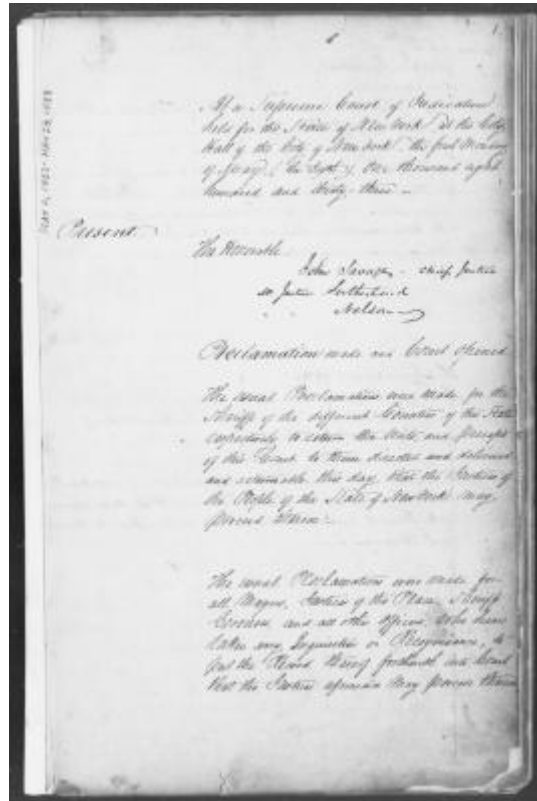 1.
At a Supreme Court of Judicature
held for the State of New York at the City
Hall of the City of New York the first Monday
of May, the sixth, One thousand eight
hundred and thirty three
Present
The Honorable
John Savage Chief Justice
Mr Justice Sutherland
Nelson
Proclamation made and Court opened
The usual Proclamations were made for the
Sheriffs of the different Counties of this State
respectively to return the Writs and precepts
of this Court to them directed and delivered
and returnable this day, that the Justices of
the People of the State of New York may
proceed thereon
The usual Proclamations were made for
all Mayors, Justices of the Peace, Sheriffs
Coroners and all other officers who have
taken any Inquisition or Recognizance, to
put the Record thereof forthwith into Court
that the Justices may proceed thereon